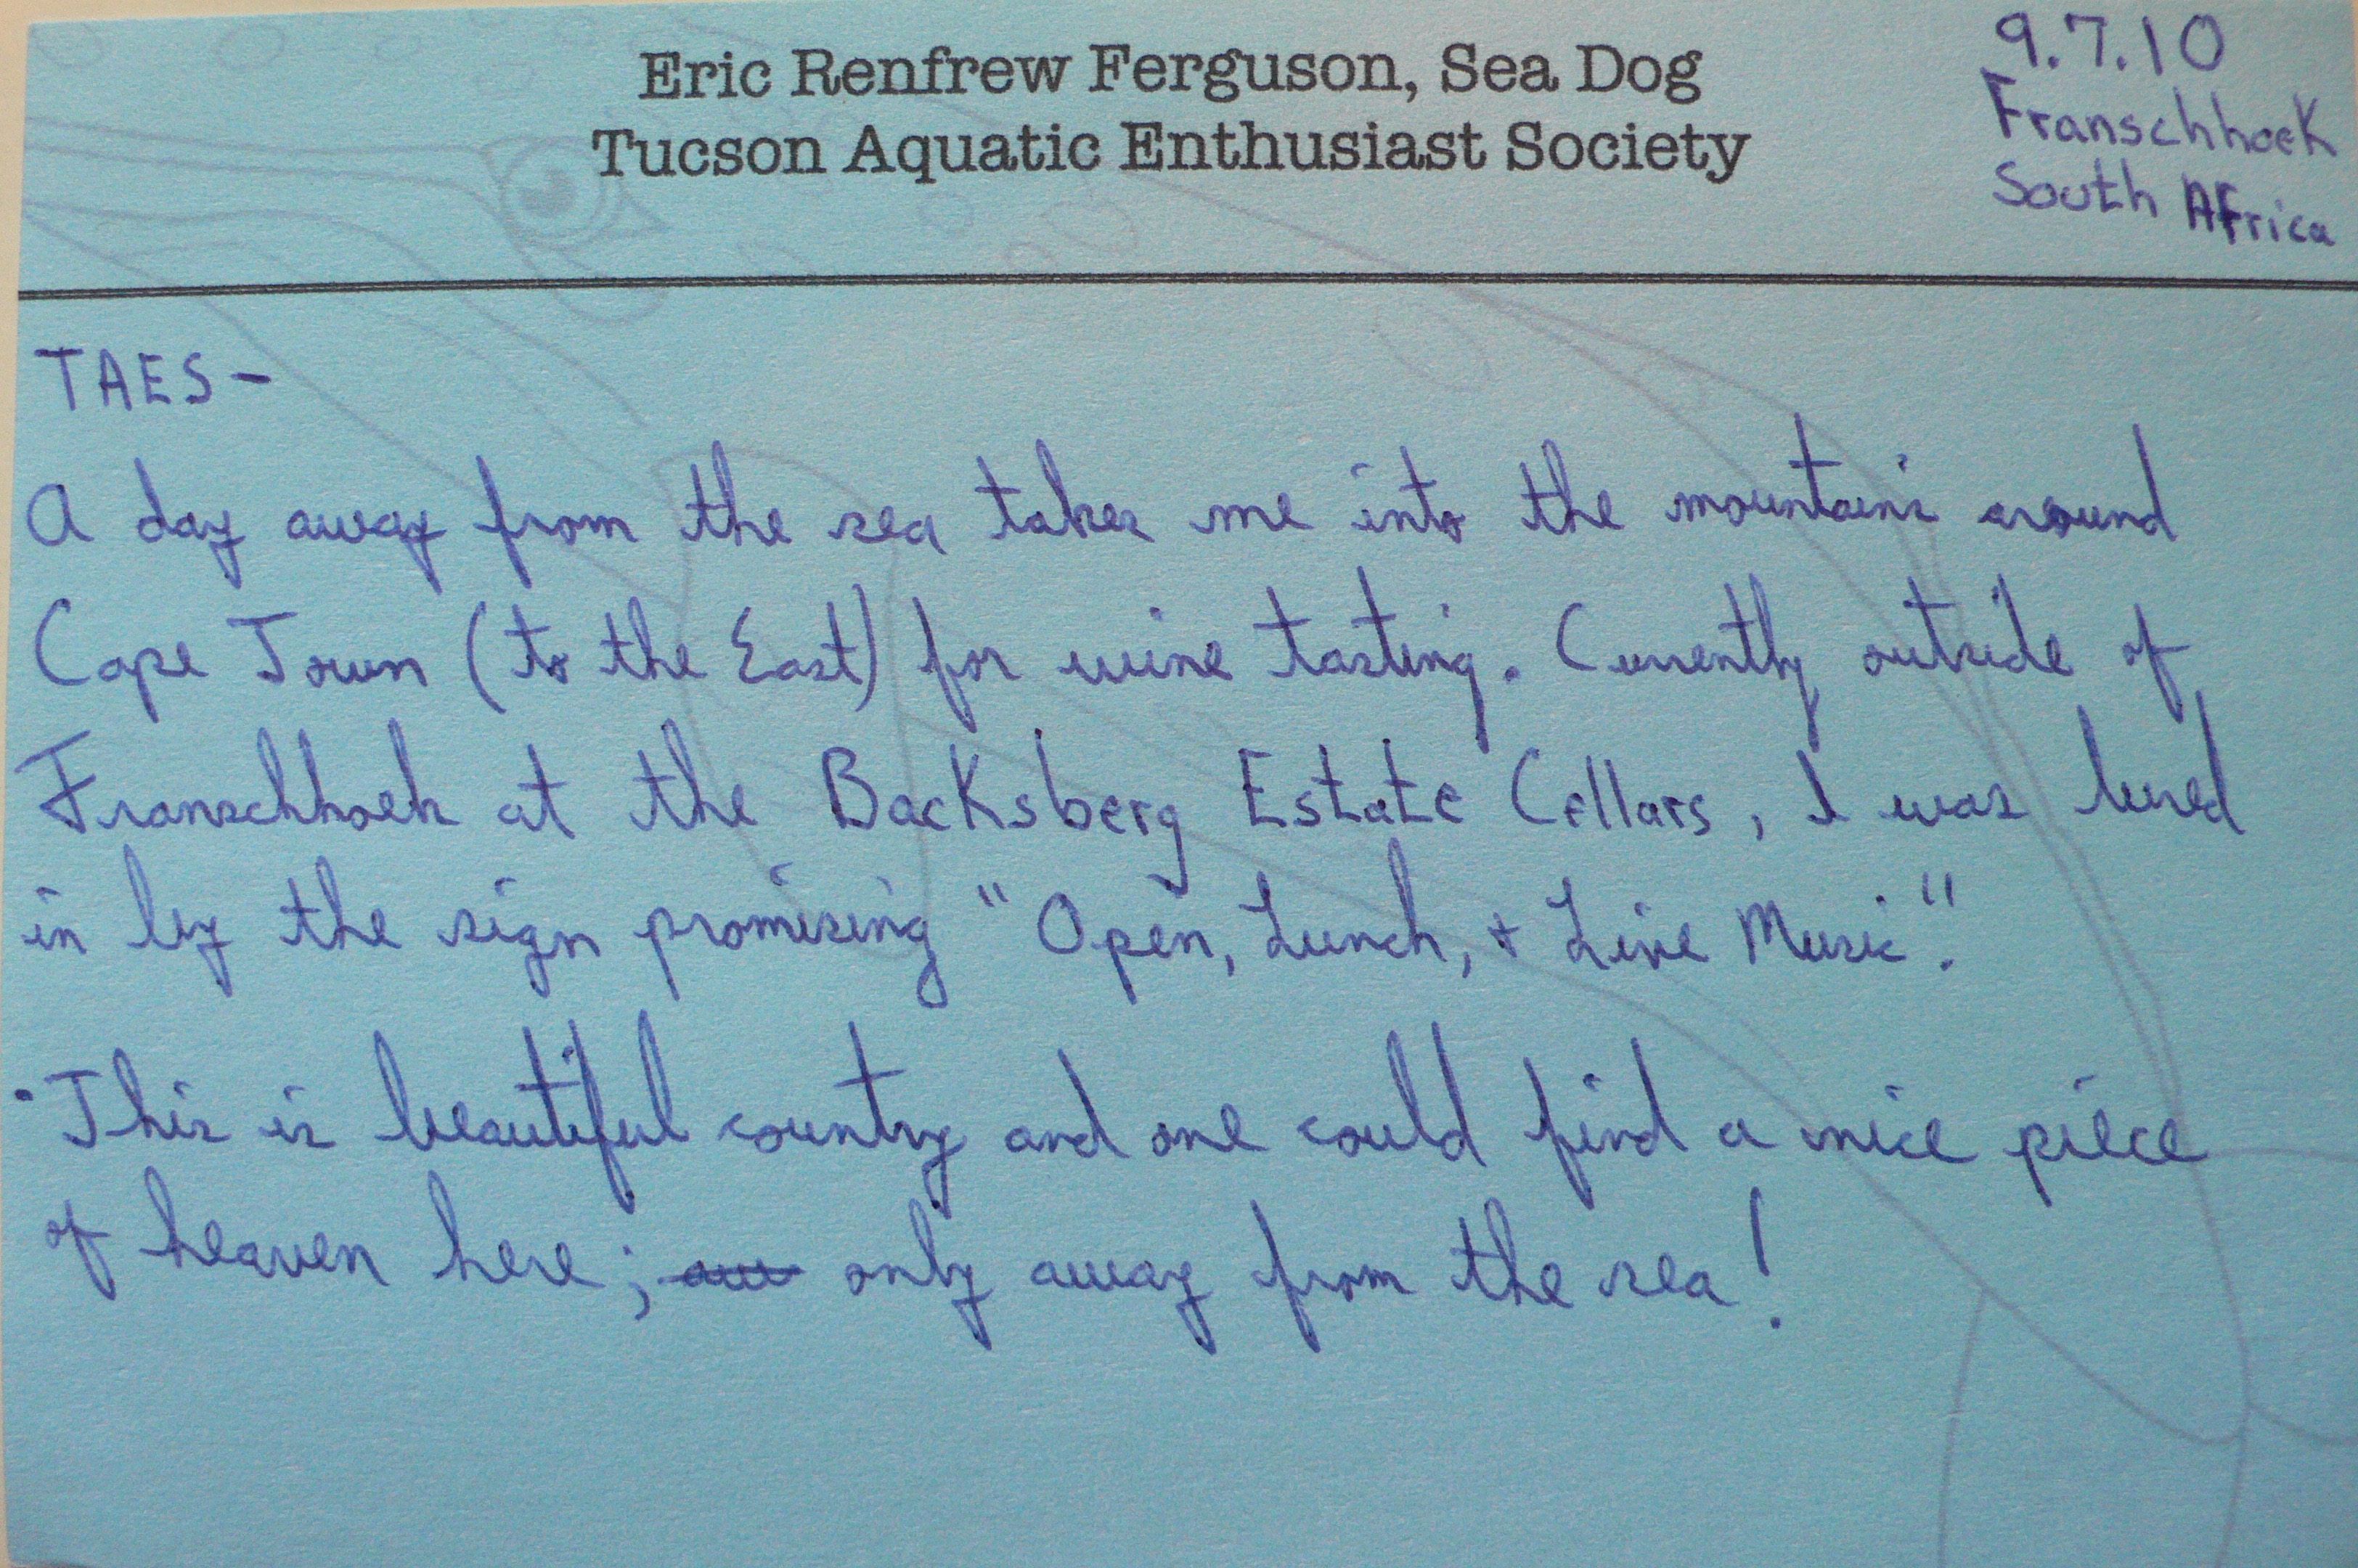 Eric Renfrew Ferguson, Sea Dog
Tucson Aquatic Enthusiast Society
9.7.10
Franschhoek
South Africa
TAES-
A day away from the sea takes me into the mountains around
Cape Town (to the East) for wine tasting. Currently outside of
Franschhoek at the Backsberg Estate Cellars, I was lured
in by the sign promising "Open, Lunch, + Live Music".
·This is beautiful country and one could find a nice piece
of heaven here; only away from the sea!